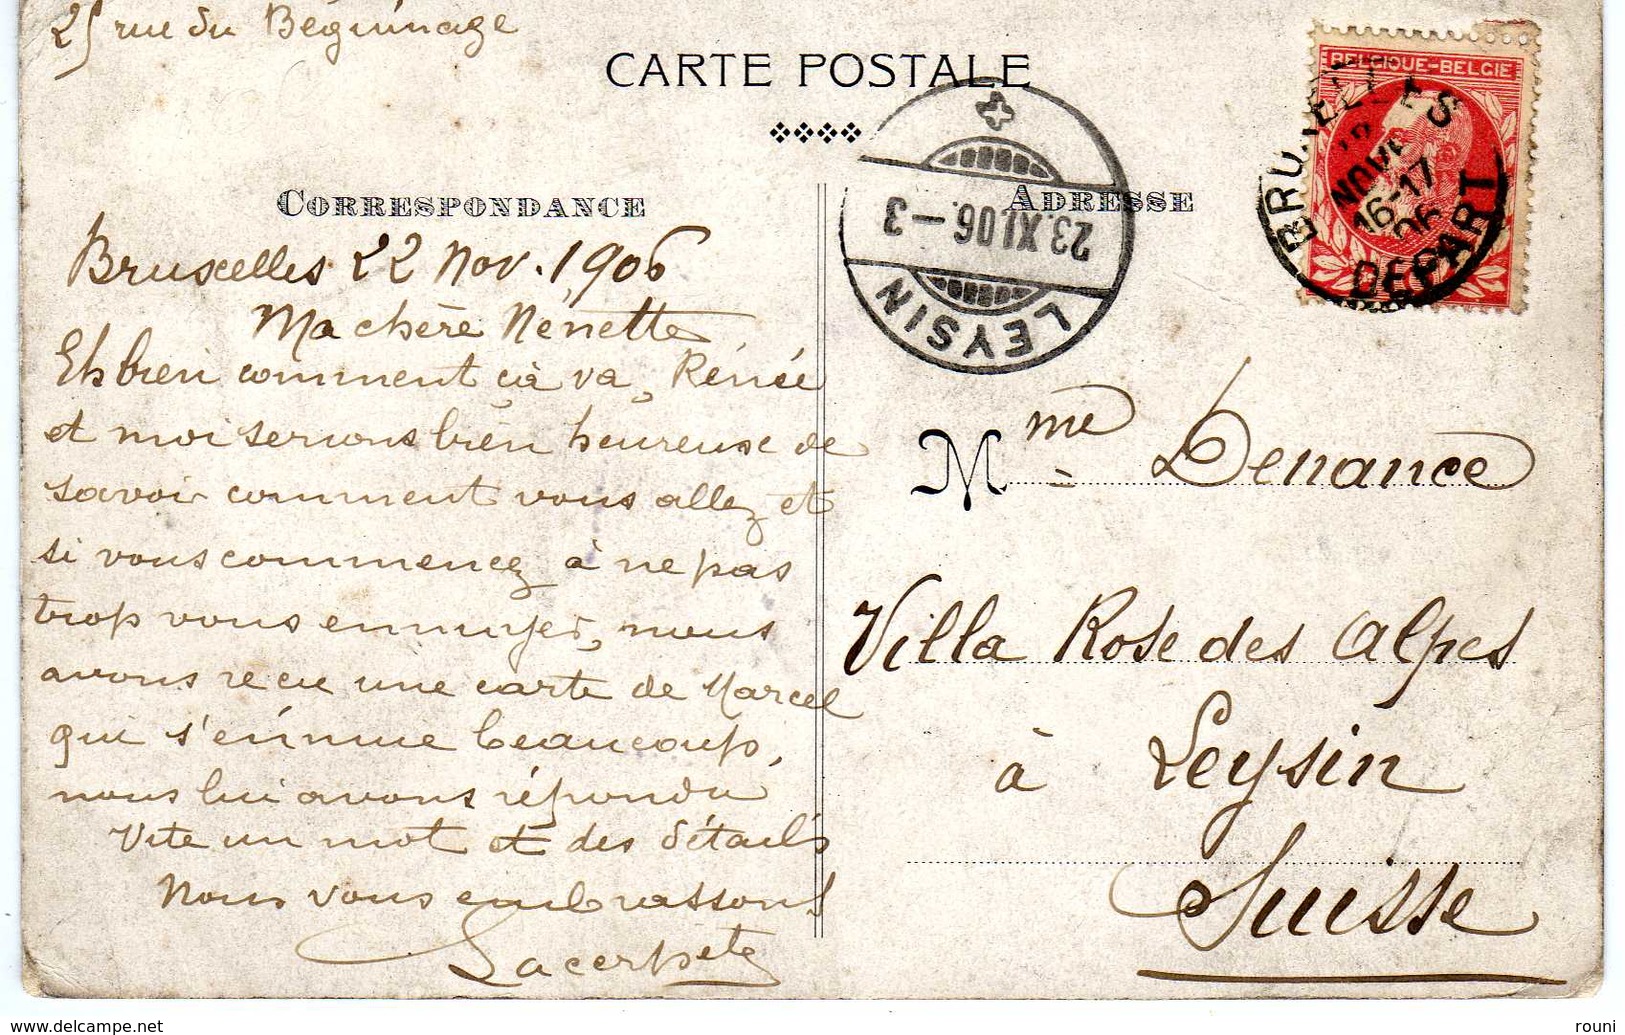 25 rue du Béguinage
CARTE POSTALE
CORRESPONDANCE
Bruxelles 22 Nov. 1906
Ma chère Nénette
Eh bien comment çà va, Rénée
et moi serions bien heureuse de
savoir comment vous allez et
si vous commencez à ne pas
trop vous ennuyer, nous
avons recu une carte de Marcel
qui s'ennuie beaucoup,
nous lui avons répondu
Vite un mot et des détails
Nous vous embrassons
ADRESSE
Mme Denance
Villa Rose des Alpes
à Leysin
Suisse
BELGIQUE-BELGIE
BRUXELLES
NOVE
16-17
06
DEPART
23.XI.06.-3
LEYSIN
www.delcampe.net
rouni